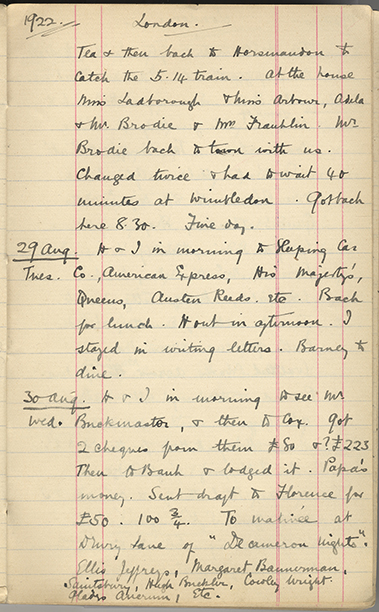 1922. London.
Tea & then back to Horsmandon to
catch the 5.14 train. At the house
Miss Ladborough & Miss Arbour, Adela
& Mr. Brodie & Mrs Franklin. Mr
Brodie back to town with us.
Changed twice & had to wait 40
minutes at Wimbledon. Got back
here 8.30. Fine day.
29 Aug. H & I in morning to Sleeping Car
Tues. Co., American Express, His Majesty's,
Queens, Austen Reeds. Etc. Back
for lunch. H out in afternoon. I
stayed in writing letters. Barney to
dine.
30 Aug. H & I in morning to see Mr
Wed. Buckmaster, & then to Cox. Got
2 cheques from them £80 & ? £223
Then to Bank & lodged it. Papa's
money. Sent draft to Florence for
£50. 100 3/4. To matinée at
Drury Lane of "Decameron Nights".
Ellis Jeffreys, Margaret Bannerman,
Saintsbury, Hugh Cowley Wright.
Gladys Etc.